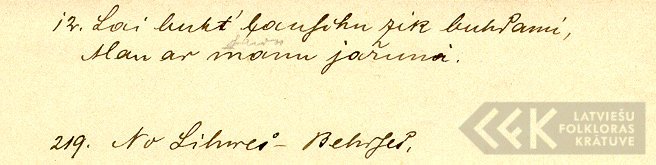 12. Lai buht' gauschu zik buhdami,
Man ar manu jaruna.
219. No Lihwes-Behrses.
LATVIEŠU
FOLKLORAS
KRĀTUVE